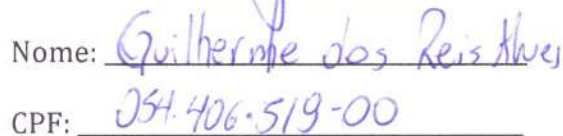 Nome: Guilherme dos Reis Alves
CPF: 054.406.519-00